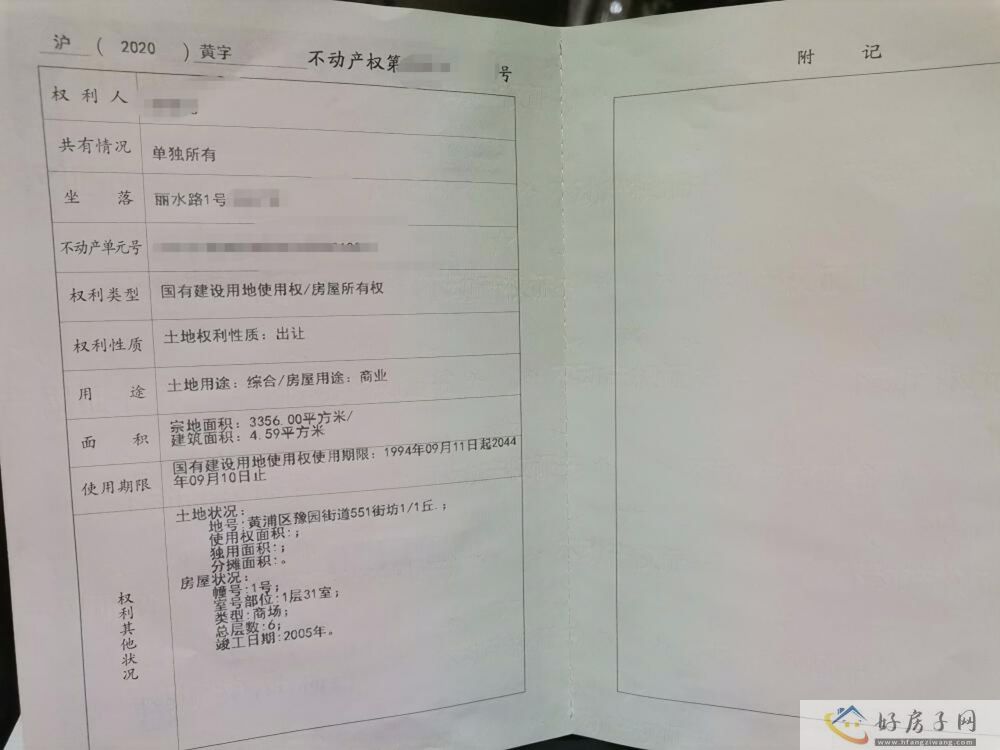 沪 ( 2020 ) 黄字 不动产权第 号
权利人
共有情况 单独所有
坐落 丽水路1号
不动产单元号
权利类型 国有建设用地使用权/房屋所有权
权利性质 土地权利性质：出让
用途 土地用途：综合/房屋用途：商业
面积 宗地面积：3356.00平方米/
建筑面积：4.59平方米
使用期限 国有建设用地使用权使用期限：1994年09月11日起2044
年09月10日止
权利其他状况
土地状况：
地号:黄浦区豫园街道551街坊1/1丘.；
使用权面积:；
独用面积:；
分摊面积:。
房屋状况：
幢号:1号；
室号部位:1层31室；
类型:商场；
总层数:6；
竣工日期:2005年。
附记
好房子网
www.hfangziwang.com